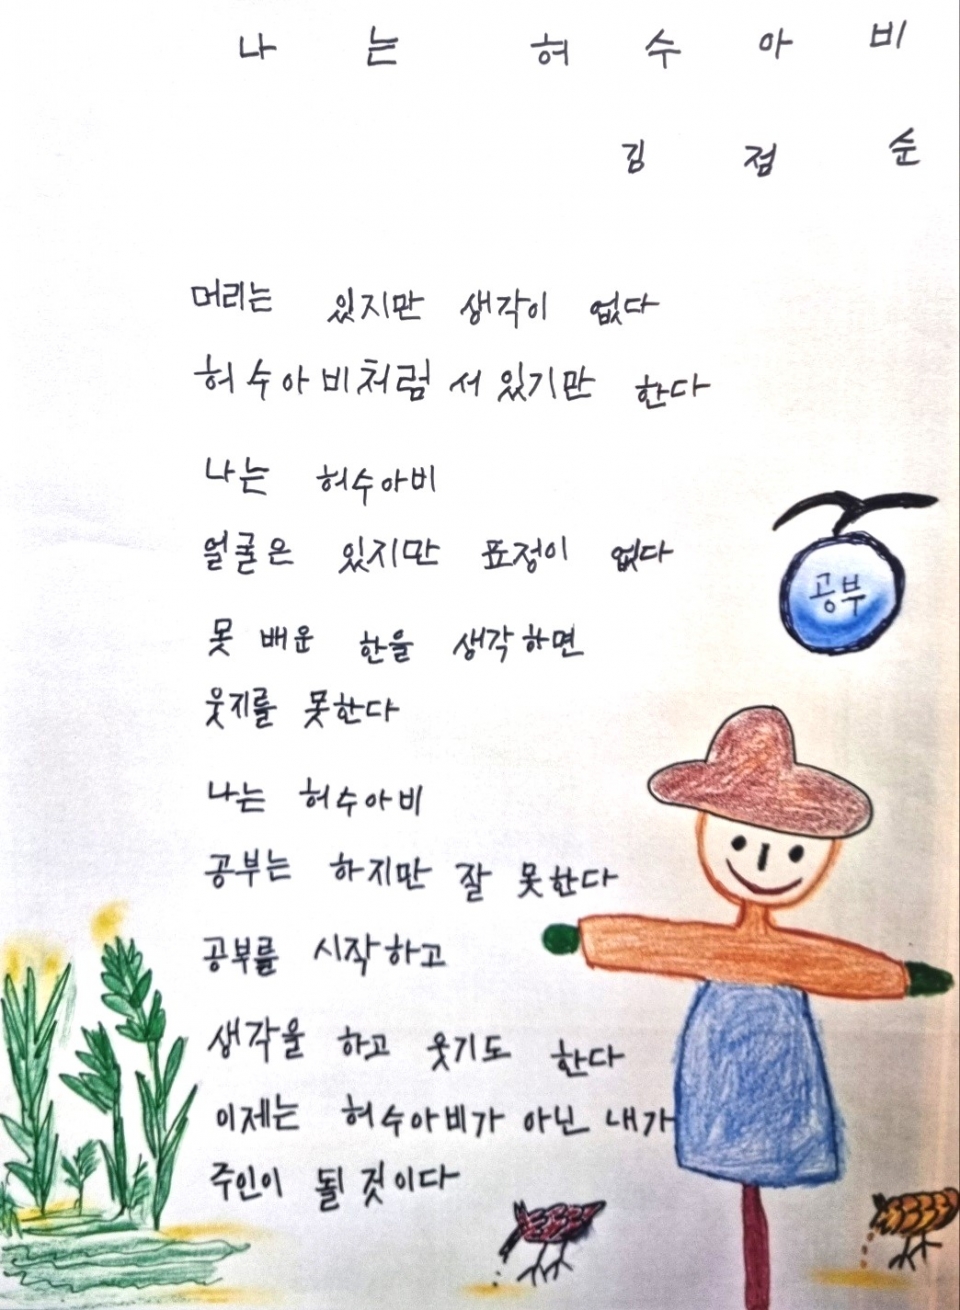 나는 허수아비
김점순
머리는 있지만 생각이 없다
허수아비처럼 서 있기만 한다
나는 허수아비
얼굴은 있지만 표정이 없다
못 배운 한을 생각하면
웃지를 못한다
나는 허수아비
공부는 하지만 잘 못한다
공부를 시작하고
생각을 하고 웃기도 한다
이제는 허수아비가 아닌 내가
주인이 될 것이다
공부